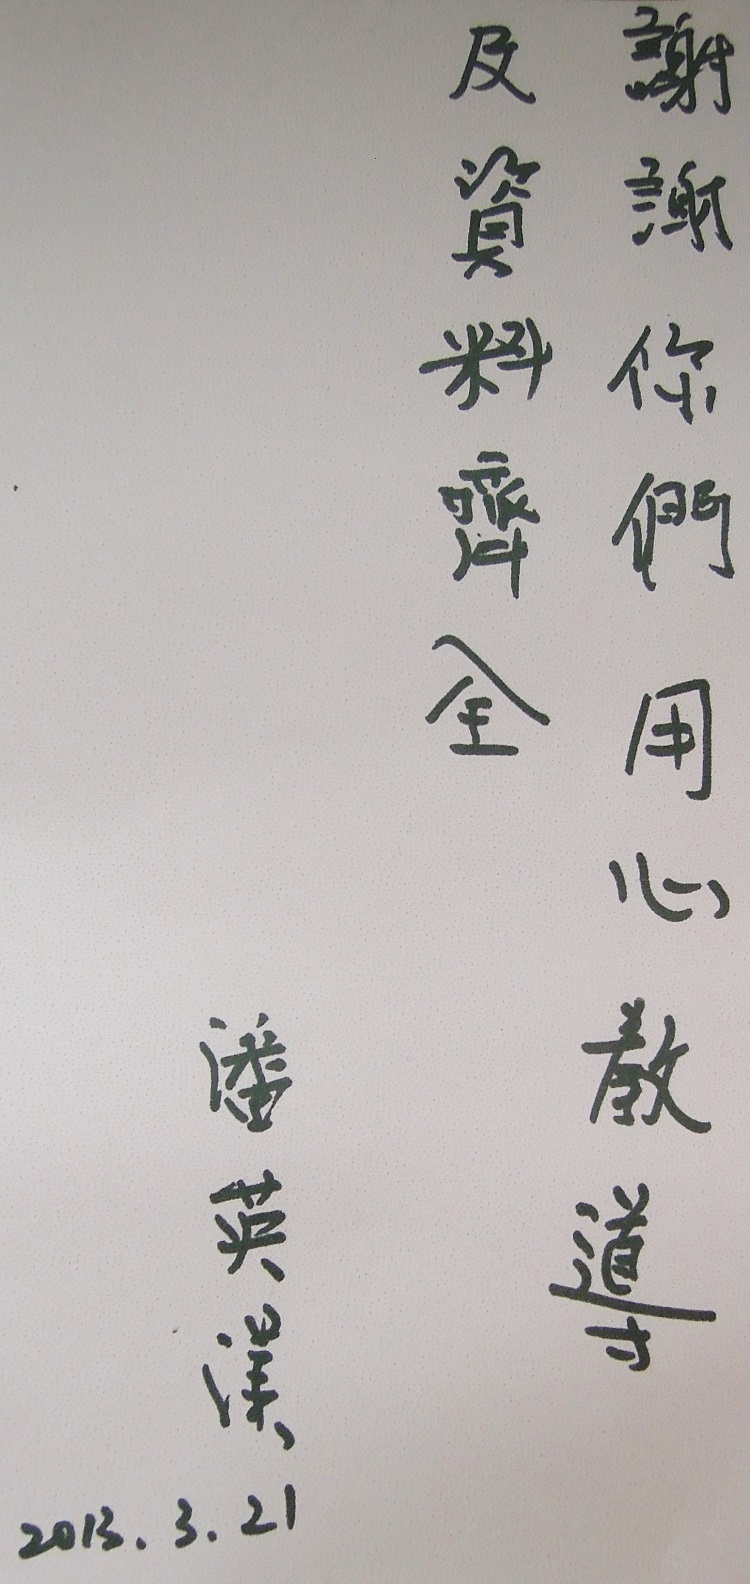 謝謝你們用心教導
及資料齊全
潘英漢
2013.3.21